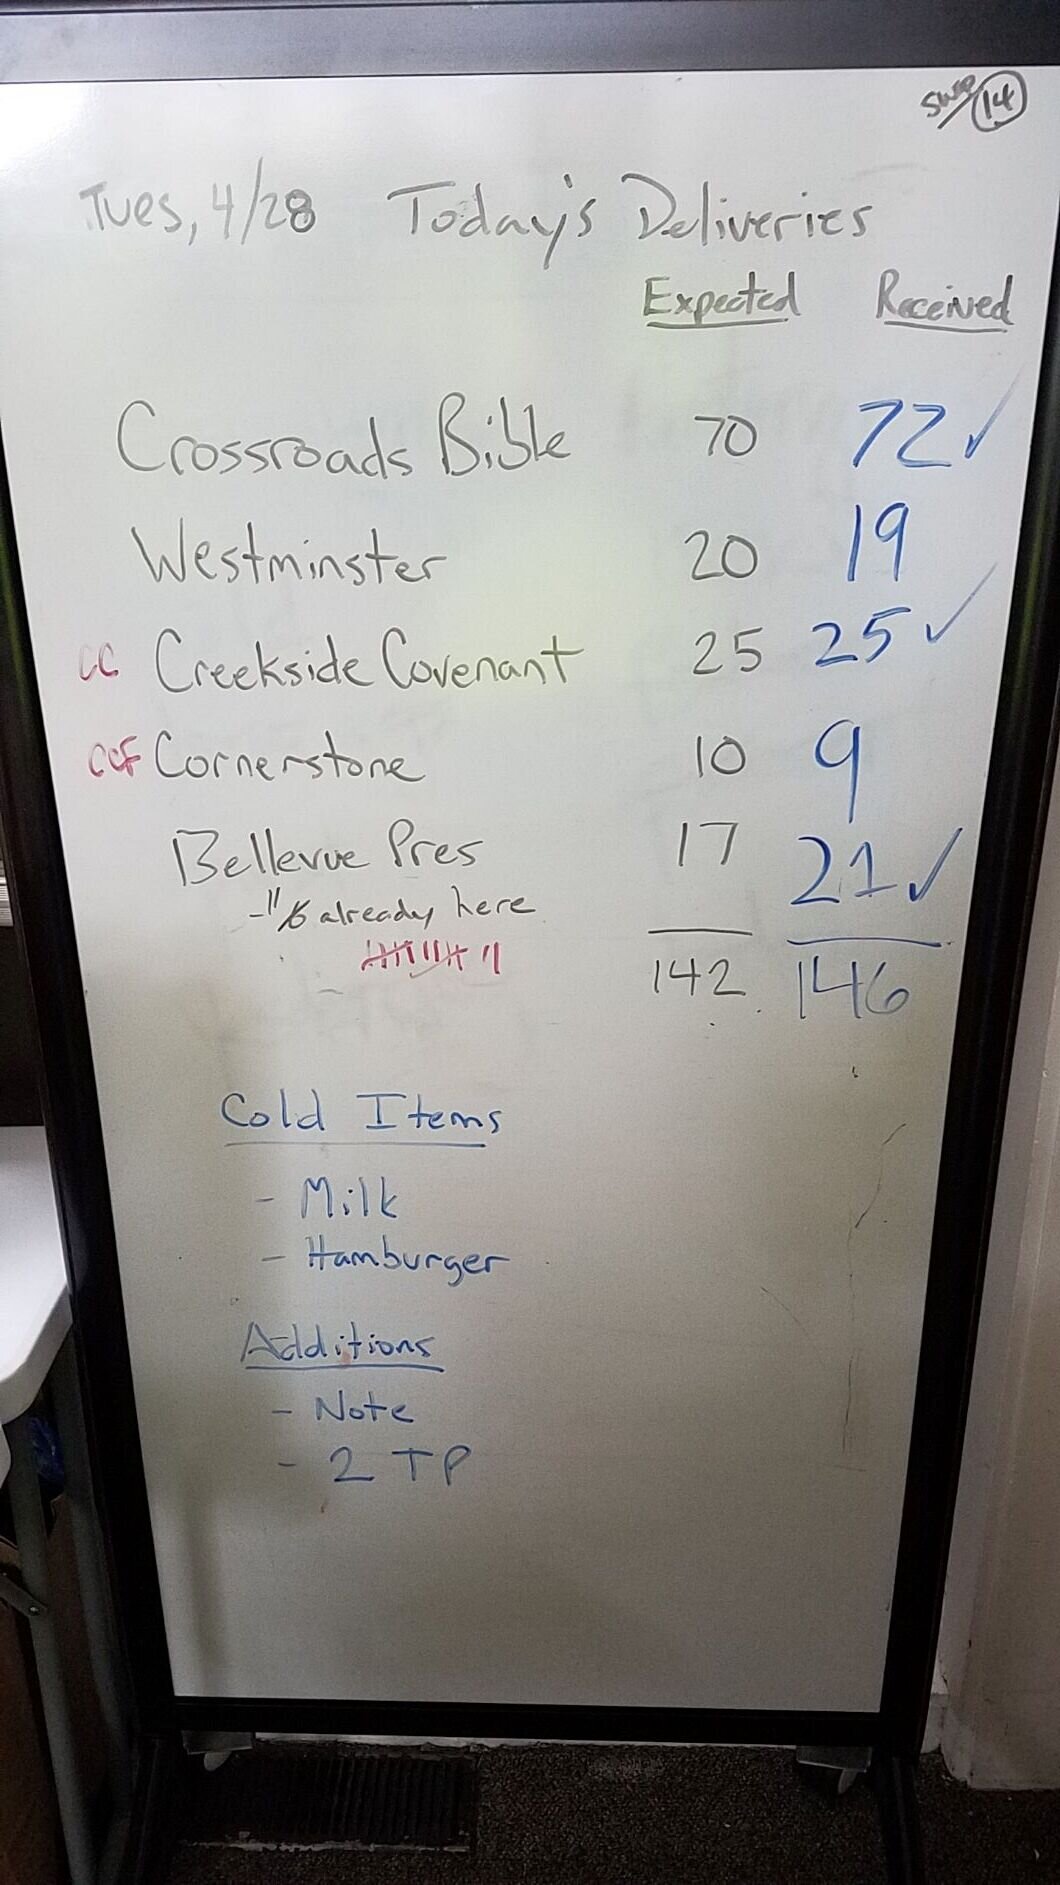 Swap 14
Tues, 4/28 Today's Deliveries
Expected Received
Crossroads Bible 70 72 ✓
Westminster 20 19
CC Creekside Covenant 25 25 ✓
CCF Cornerstone 10 9
Bellevue Pres 17 21 ✓
already here
142 146
Cold Items
- Milk
- Hamburger
Additions
- Note
- 2 TP